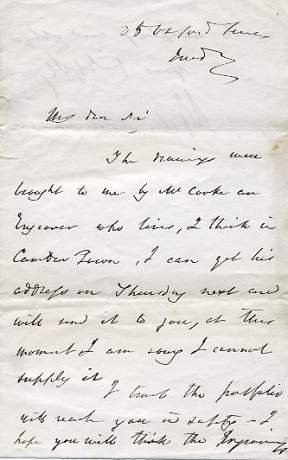 My dear Sir
The drawings were
brought to me by Mr Cooke an
Engraver who lives, I think in
Camden Town, I can get his
address on Thursday next and
will send it to you, at this
moment I am sorry I cannot
supply it
I trust the portfolio
will reach you in safety – I
hope you will think the Engravings